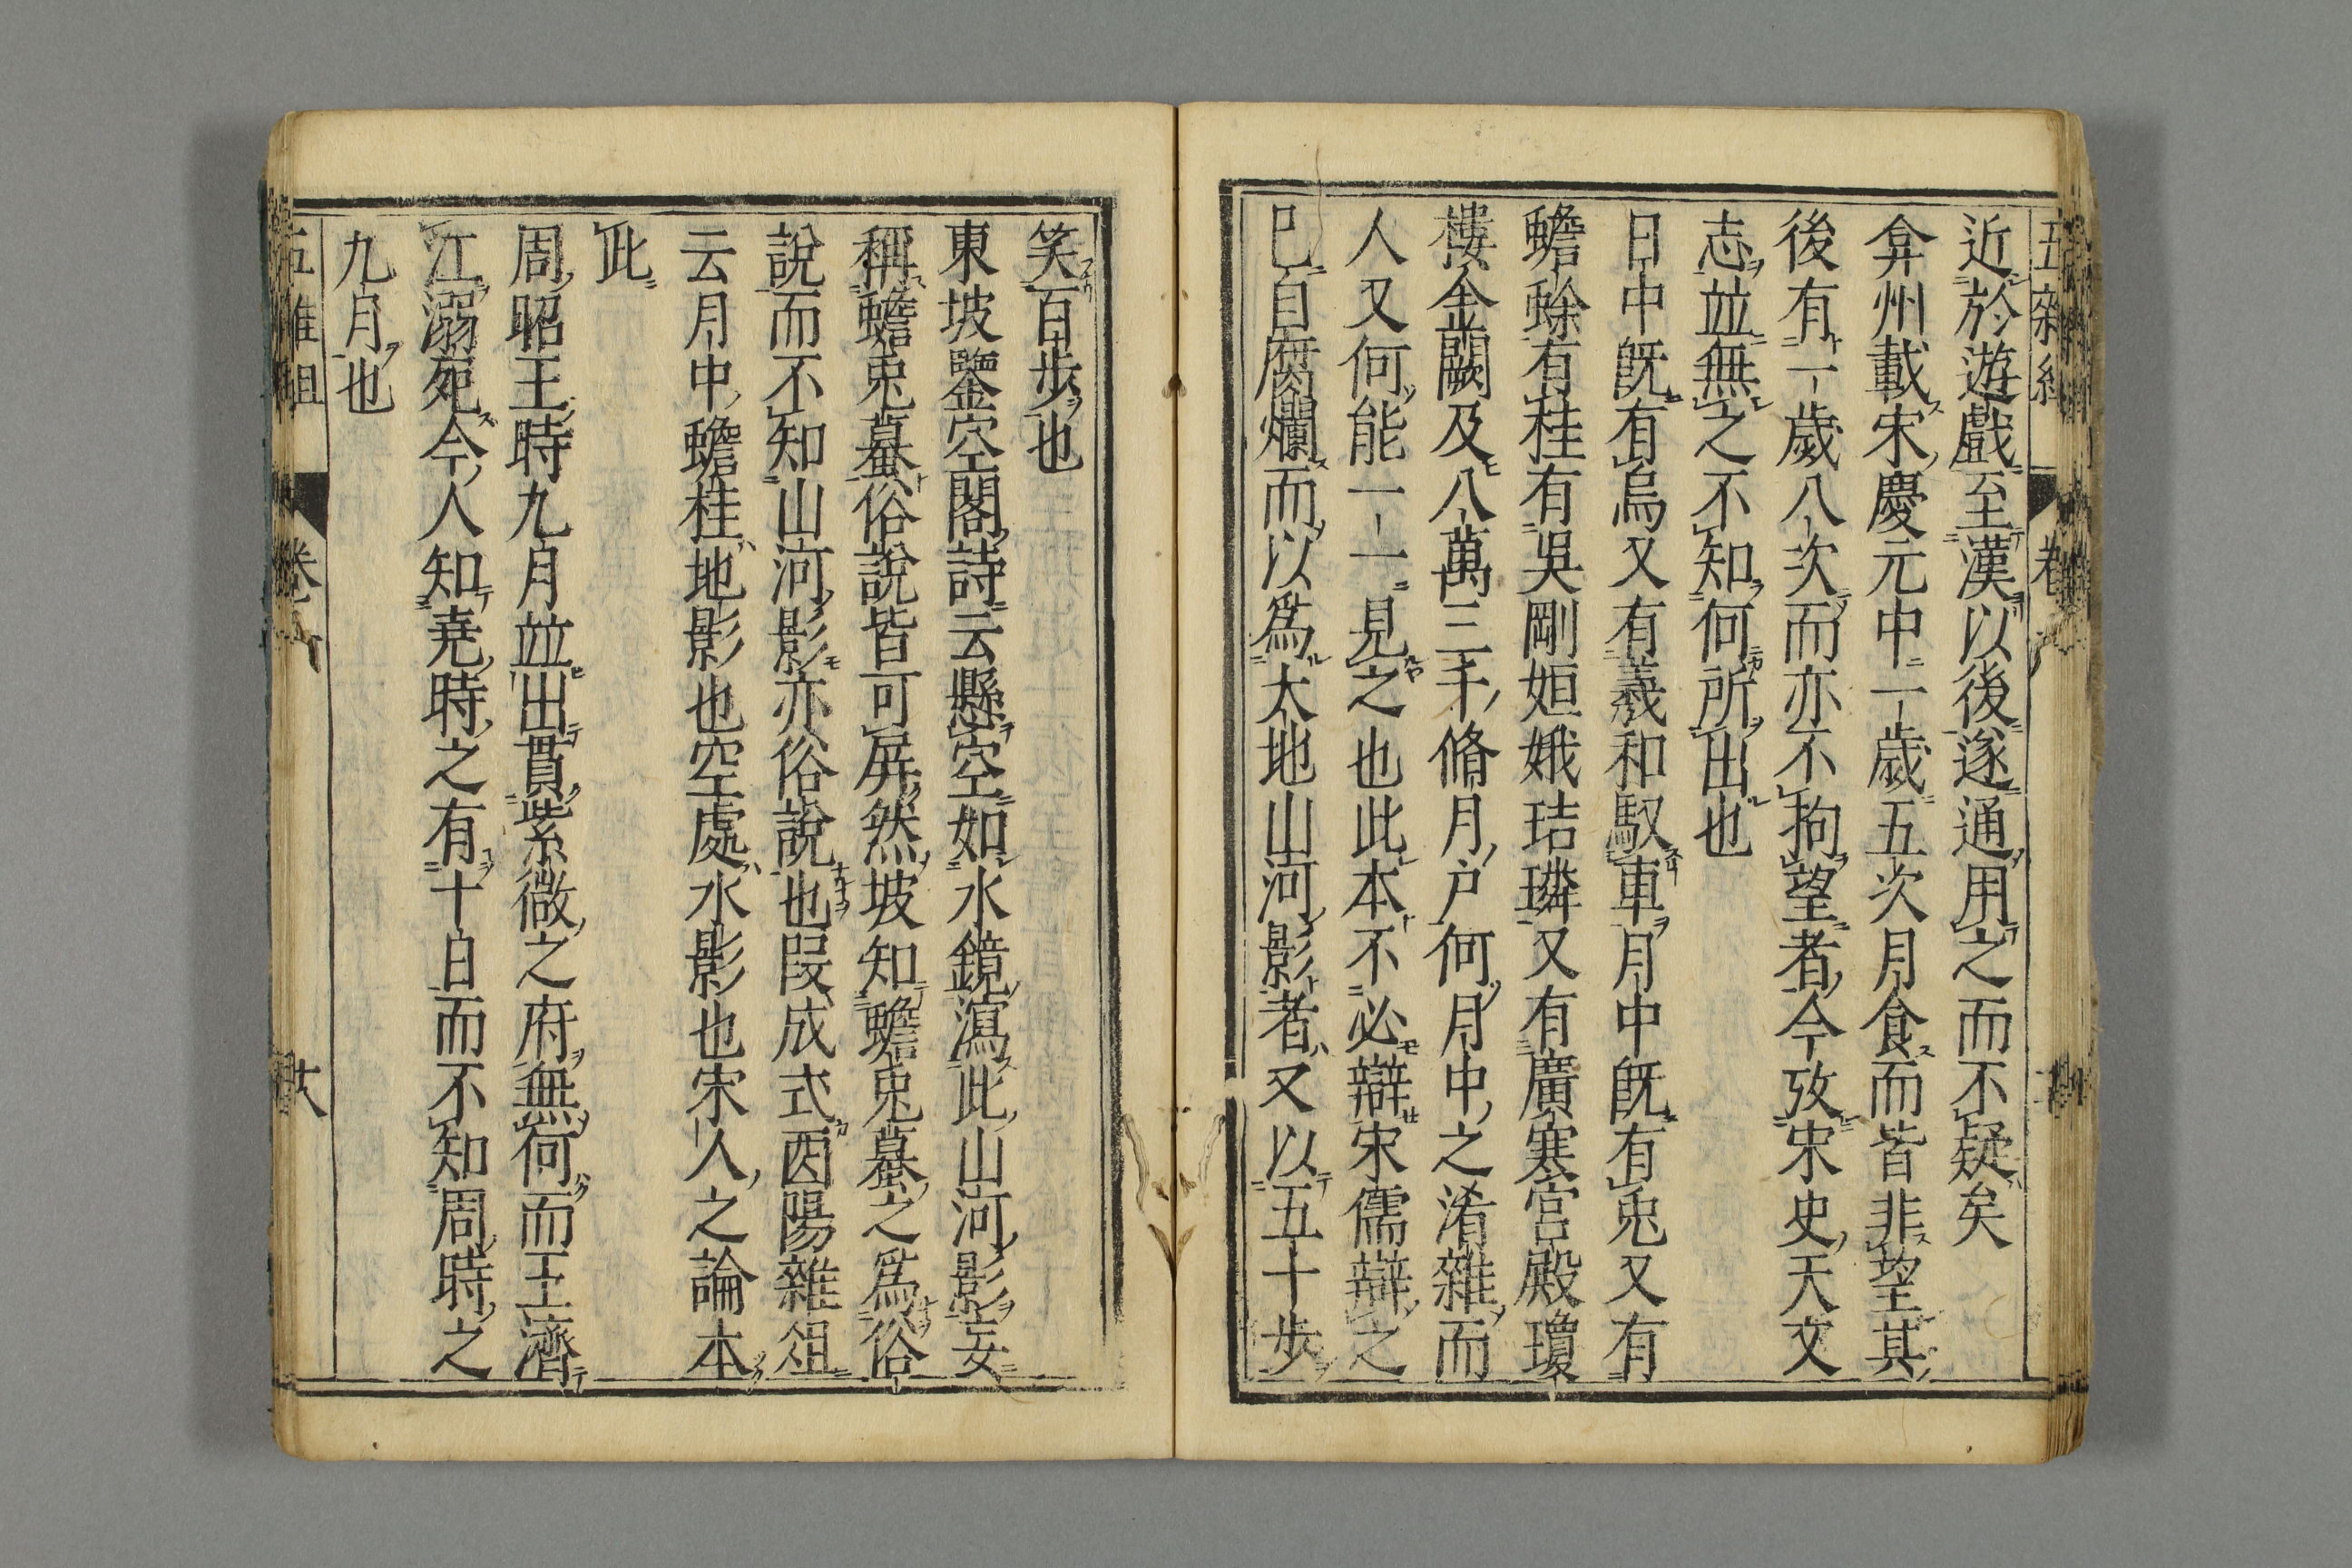 近於遊戲至漢以後遂通用之而不疑矣
弇州載宋慶元中一歲五次月食而皆非望其
後有一歲八次而亦不拘望者今攷宋史天文
志並無之不知何所出也
日中旣有烏又有羲和馭車月中旣有兎又有
蟾蜍有桂有吳剛姮娥琂璘又有廣寒宮殿瓊
樓金闕及八萬三千脩月户何月中之淆雜而
人又何能一一見之也此本不必辯宋儒辯之
已自腐爛而以為大地山河影者又以五十步
笑百步也
東坡鑒空閣詩云懸空如水鏡瀉此山河影妄
稱蟾兎蟇俗說皆可屏然坡知蟾兎蟇之為俗
說而不知山河影亦俗說也段成式酉陽雜俎
云月中蟾桂地影也空處水影也宋人之論本
此
周昭王時九月並出貫紫微之府無何而王濟
江溺死今人知堯時之有十日而不知周時之
九月也